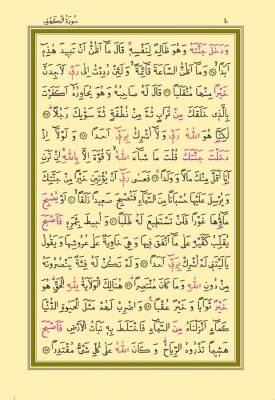 سُورَةُ الْكَهْفِ
وَدَخَلَ جَنَّتَهُ وَهُوَ ظَالِمٌ لِنَفْسِهِ قَالَ مَا أَظُنُّ أَنْ تَبِيدَ هٰذِهِ
أَبَدًا وَمَا أَظُنُّ السَّاعَةَ قَائِمَةً وَلَئِنْ رُدِدْتُ إِلٰى رَبِّي لَأَجِدَنَّ
خَيْرًا مِنْهَا مُنْقَلَبًا قَالَ لَهُ صَاحِبُهُ وَهُوَ يُحَاوِرُهُ أَكَفَرْتَ
بِالَّذِي خَلَقَكَ مِنْ تُرَابٍ ثُمَّ مِنْ نُطْفَةٍ ثُمَّ سَوّٰيكَ رَجُلًا
لٰكِنَّا هُوَ اللّٰهُ رَبِّي وَلَا أُشْرِكُ بِرَبِّي أَحَدًا وَلَوْلَا إِذْ
دَخَلْتَ جَنَّتَكَ قُلْتَ مَا شَاءَ اللّٰهُ لَا قُوَّةَ إِلَّا بِاللّٰهِ إِنْ تَرَنِ
أَنَا أَقَلَّ مِنْكَ مَالًا وَوَلَدًا فَعَسٰى رَبِّي أَنْ يُؤْتِيَنِ خَيْرًا مِنْ جَنَّتِكَ
وَيُرْسِلَ عَلَيْهَا حُسْبَانًا مِنَ السَّمَاءِ فَتُصْبِحَ صَعِيدًا زَلَقًا أَوْ يُصْبِحَ
مَاؤُهَا غَوْرًا فَلَنْ تَسْتَطِيعَ لَهُ طَلَبًا وَأُحِيطَ بِثَمَرِهِ فَأَصْبَحَ
يُقَلِّبُ كَفَّيْهِ عَلٰى مَا أَنْفَقَ فِيهَا وَهِيَ خَاوِيَةٌ عَلٰى عُرُوشِهَا وَيَقُولُ
يَالَيْتَنِي لَمْ أُشْرِكْ بِرَبِّي أَحَدًا وَلَمْ تَكُنْ لَهُ فِئَةٌ يَنْصُرُونَهُ
مِنْ دُونِ اللّٰهِ وَمَا كَانَ مُنْتَصِرًا هُنَالِكَ الْوَلَايَةُ لِلّٰهِ الْحَقِّ هُوَ
خَيْرٌ ثَوَابًا وَخَيْرٌ عُقْبًا وَاضْرِبْ لَهُمْ مَثَلَ الْحَيٰوةِ الدُّنْيَا
كَمَاءٍ أَنْزَلْنَاهُ مِنَ السَّمَاءِ فَاخْتَلَطَ بِهِ نَبَاتُ الْأَرْضِ فَأَصْبَحَ
هَشِيمًا تَذْرُوهُ الرِّيَاحُ وَكَانَ اللّٰهُ عَلٰى كُلِّ شَيْءٍ مُقْتَدِرًا